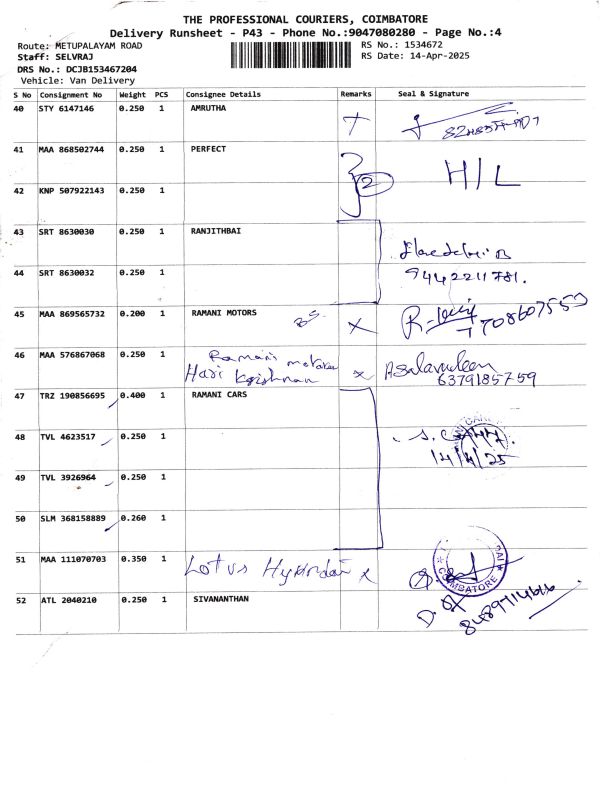 THE PROFESSIONAL COURIERS, COIMBATORE
Delivery Runsheet - P43 - Phone No.:9047080280 - Page No.:4
Route: METUPALAYAM ROAD
Staff: SELVRAJ
DRS No.: DCJB153467204
Vehicle: Van Delivery
RS No.: 1534672
RS Date: 14-Apr-2025
S No Consignment No Weight PCS Consignee Details Remarks Seal & Signature
40 STY 6147146 0.250 1 AMRUTHA
41 MAA 868502744 0.250 1 PERFECT 2 H/L
42 KNP 507922143 0.250 1
43 SRT 8630030 0.250 1 RANJITHBAI
44 SRT 8630032 0.250 1
9442211781.
45 MAA 869565732 0.200 1 RAMANI MOTORS x
46 MAA 576867068 0.250 1 Ramani
Hari Krishnan x
6379185759
47 TRZ 190856695 0.400 1 RAMANI CARS
48 TVL 4623517 0.250 1
14/4/25
49 TVL 3926964 0.250 1
50 SLM 368158889 0.260 1
51 MAA 111070703 0.350 1 Lotus Hyundai x
COIMBATORE
52 ATL 2040210 0.250 1 SIVANANTHAN